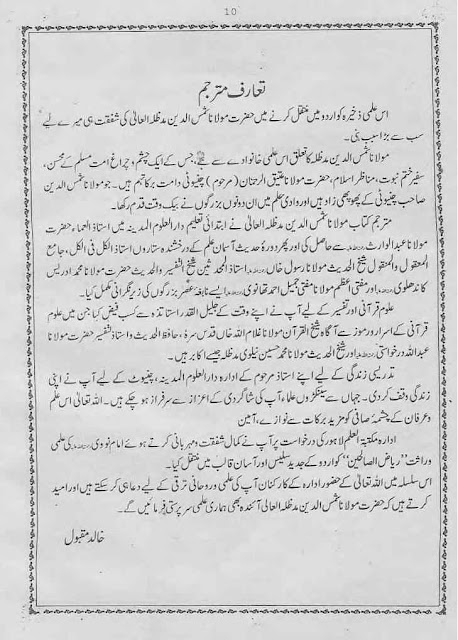 10
تعارف مترجم
اس علمی ذخیرہ کو اردو میں منتقل کرنے میں حضرت مولانا شمس الدین مدظلہ العالی کی شفقت ہی میرے لیے
سب سے بڑا سبب بنی۔
مولانا شمس الدین مدظلہ کا تعلق اس علمی خانوادے سے ہے جس کے ایک چشم، چراغ امت مسلم کے محسن،
سفیر ختم نبوت، مناظر اسلام، حضرت مولانا عتیق الرحمٰن (مرحوم) چنیوٹی دامت برکاتہم ہیں۔ جو مولانا شمس الدین
صاحب چنیوٹی کے پھوپھی زاد ہیں اور وادی علم میں ان دونوں بزرگوں نے بیک وقت قدم رکھا۔
مترجم کتاب مولانا شمس الدین مدظلہ العالی نے ابتدائی تعلیم دار العلوم المدینہ میں استاذ العماء حضرت
مولانا عبد الوارث سے حاصل کی اور پھر دورۂ حدیث آسمان علم کے درخشندہ ستاروں استاذ الکل فی الکل، جامع
المعقول والمنقول شیخ الحدیث مولانا رسول خاں استاذ المحدثین شیخ التفسیر والحدیث حضرت مولانا محمد ادریس
کاندھلوی اور مفتی اعظم مولانا مفتی جمیل احمد تھانوی ایسے نابغہ عصر بزرگوں کی زیر نگرانی مکمل کیا۔
علوم قرآنی اور تفسیر کے لیے آپ نے اپنے وقت کے جلیل القدر اساتذہ سے کسب فیض کیا جن میں علوم
قرآنی کے اسرار و رموز سے آگاہ شیخ القرآن مولانا غلام اللہ خاں قدس سرہٗ، حافظ الحدیث و استاذ التفسیر حضرت مولانا
عبد اللہ درخواستی اور شیخ الحدیث مولانا محمد حسین نیلوی مدظلہ جیسے اکابر ہیں۔
تدریسی زندگی کے لیے اپنے استاذ مرحوم کے ادارہ دار العلوم المدینہ، چنیوٹ کے لیے آپ نے اپنی
زندگی وقف کر دی۔ جہاں سے سینکڑوں علماء آپ کی شاگردی کے اعزاز سے سرفراز ہو چکے ہیں۔ اللہ تعالٰی اس علم
و عرفان کے چشمۂ صافی کو مزید برکات سے نوازے، آمین
ادارہ مکتبۃ العلم لاہور کی درخواست پر آپ نے کمال شفقت و مہربانی کرتے ہوئے امام نووی کی علمی
وراثت ”ریاض الصالحین“ کو اردو کے جدید سلیس اور آسان قالب میں منتقل کیا۔
اس سلسلہ میں اللہ تعالٰی کے حضور ادارہ کے کارکنان آپ کی علمی و روحانی ترقی کے لیے دعا ہی کر سکتے ہیں اور امید
کرتے ہیں کہ حضرت مولانا شمس الدین مدظلہ العالی آئندہ بھی ہماری علمی سرپرستی فرمائیں گے۔
خالد مقبول